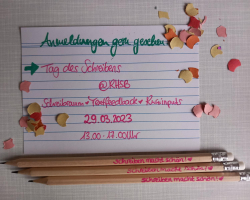 Anmeldungen gern gesehen:
Tag des Schreibens
@RUSB
Schreibraum ♥ Textfeedback ♥ Schreibimpuls
29.03.2023
13.00-17.00 Uhr
Schreiben macht schön! ♥
Schreiben macht schön! ♥
Schreiben macht schön! ♥